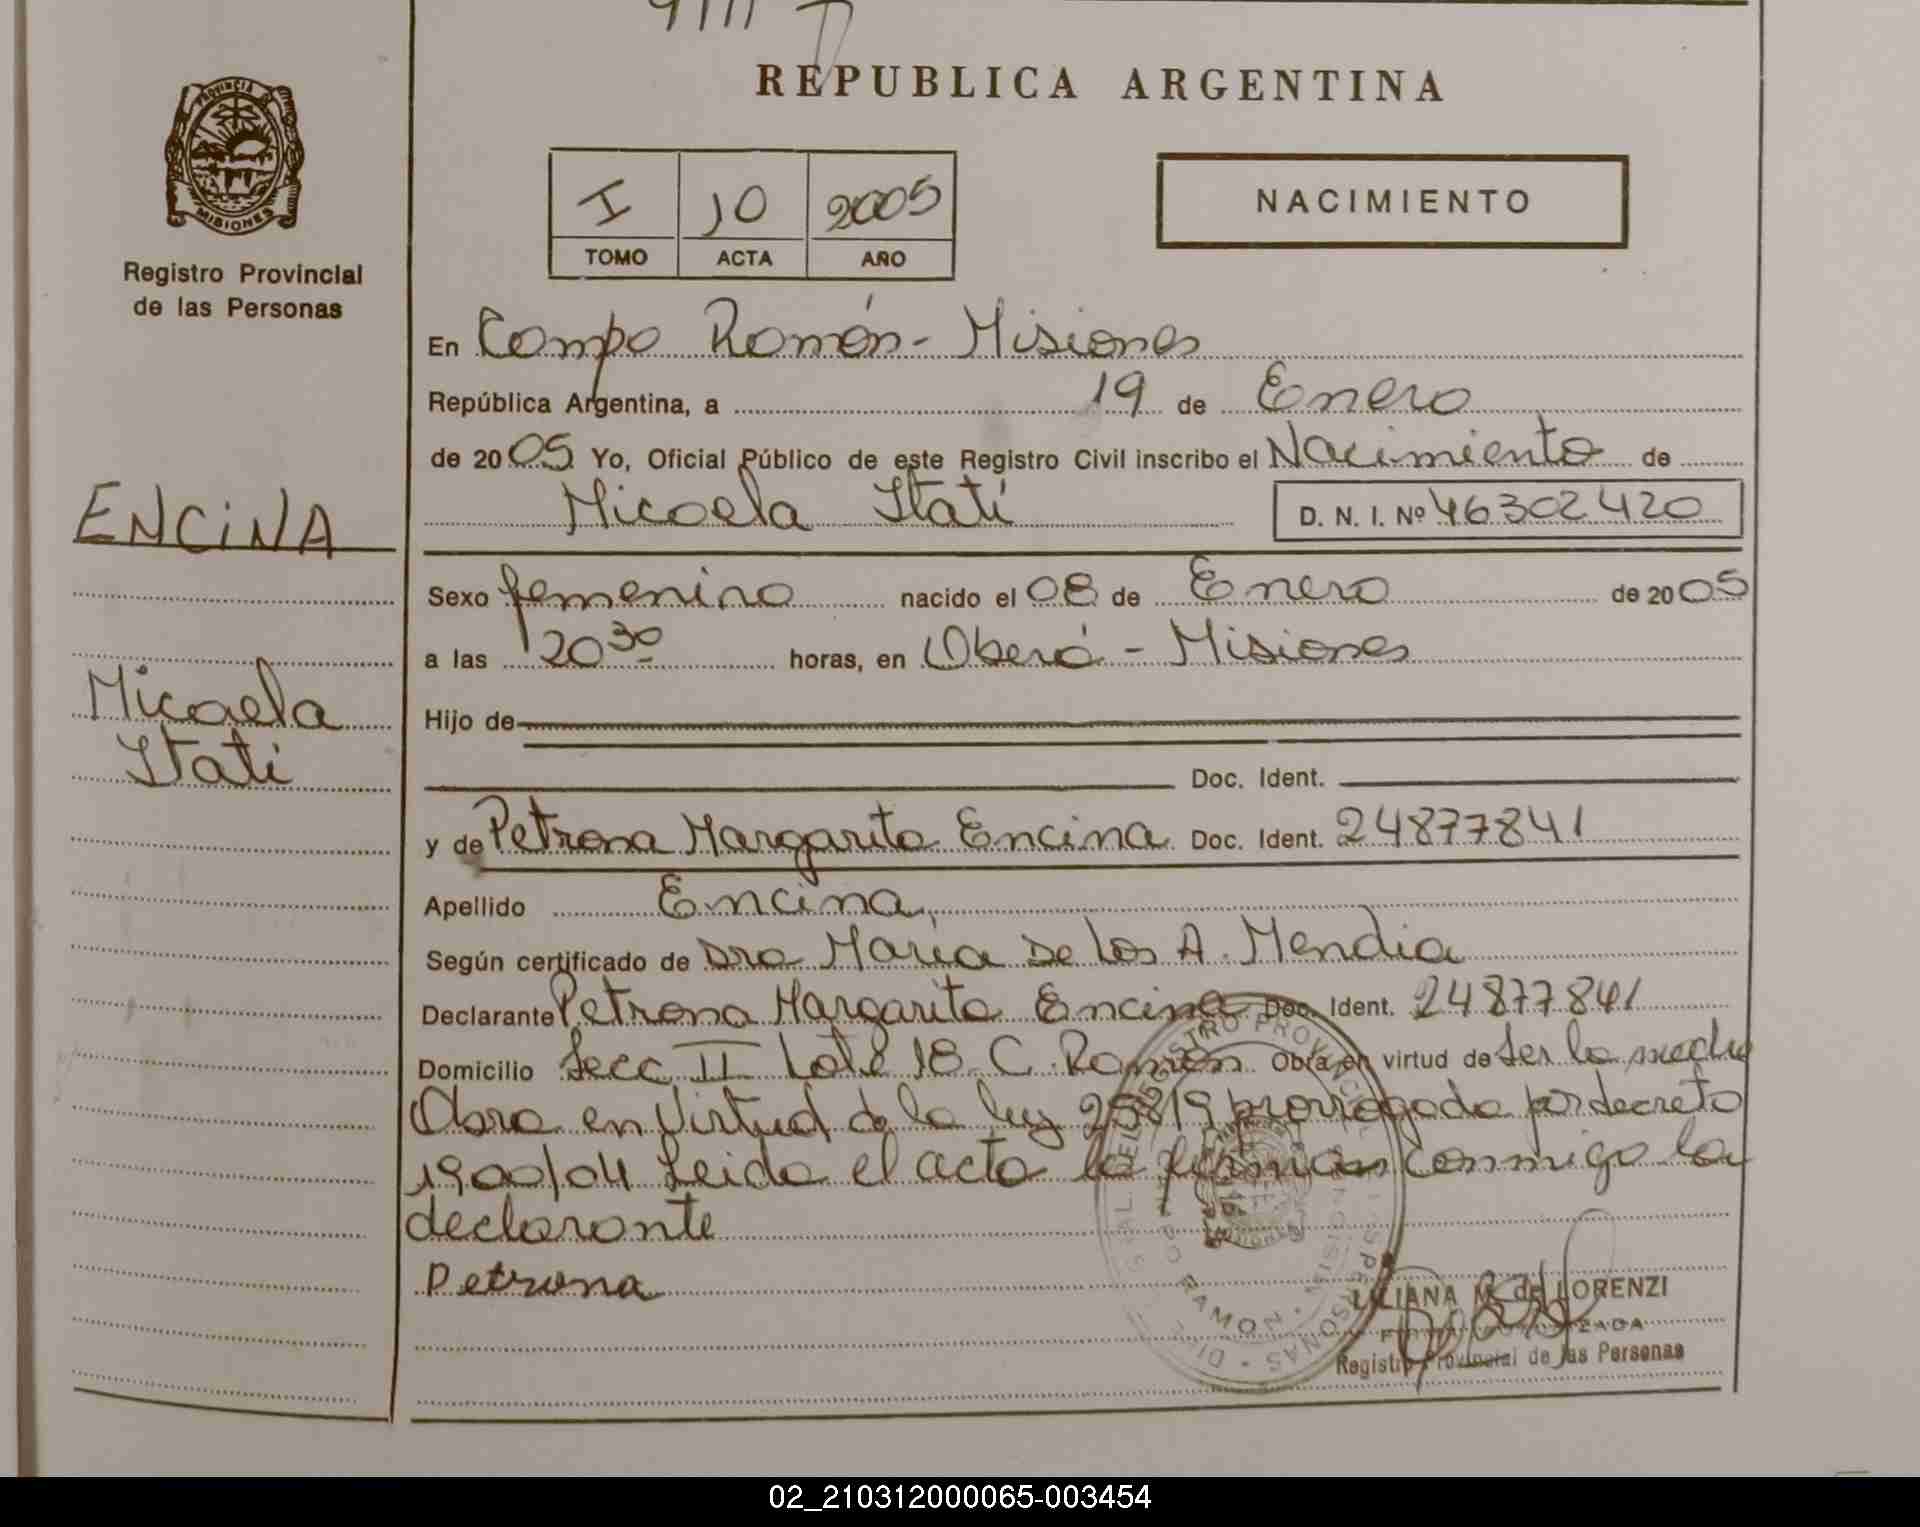 REPUBLICA ARGENTINA
PROVINCIA DE MISIONES
Registro Provincial
de las Personas
I 10 2005
TOMO ACTA AÑO
NACIMIENTO
En Campo Ramón - Misiones
República Argentina, a 19 de Enero
de 2005 Yo, Oficial Público de este Registro Civil inscribo el Nacimiento de
Micaela Itatí D. N. I. Nº 46302420
ENCiNA
Micaela
Itatí
Sexo femenino nacido el 08 de Enero de 2005
a las 20 30 horas, en Oberá - Misiones
Hijo de
Doc. Ident.
y de Petrona Margarita Encina Doc. Ident. 24877841
Apellido Encina
Según certificado de Dra María De los A. Mendia
Declarante Petrona Margarita Encina Doc. Ident. 24877841
Domicilio Secc II Lote 18 C. Ramón Obra en virtud de ser la madre
Obra en Virtud de la ley 25819 prorrogada por decreto
1900/04 Leida el acta la firman conmigo la
declarante
Petrona
LILIANA M. de LORENZI
FIRMA AUTORIZADA
Registro Provincial de las Personas
02_210312000065-003454